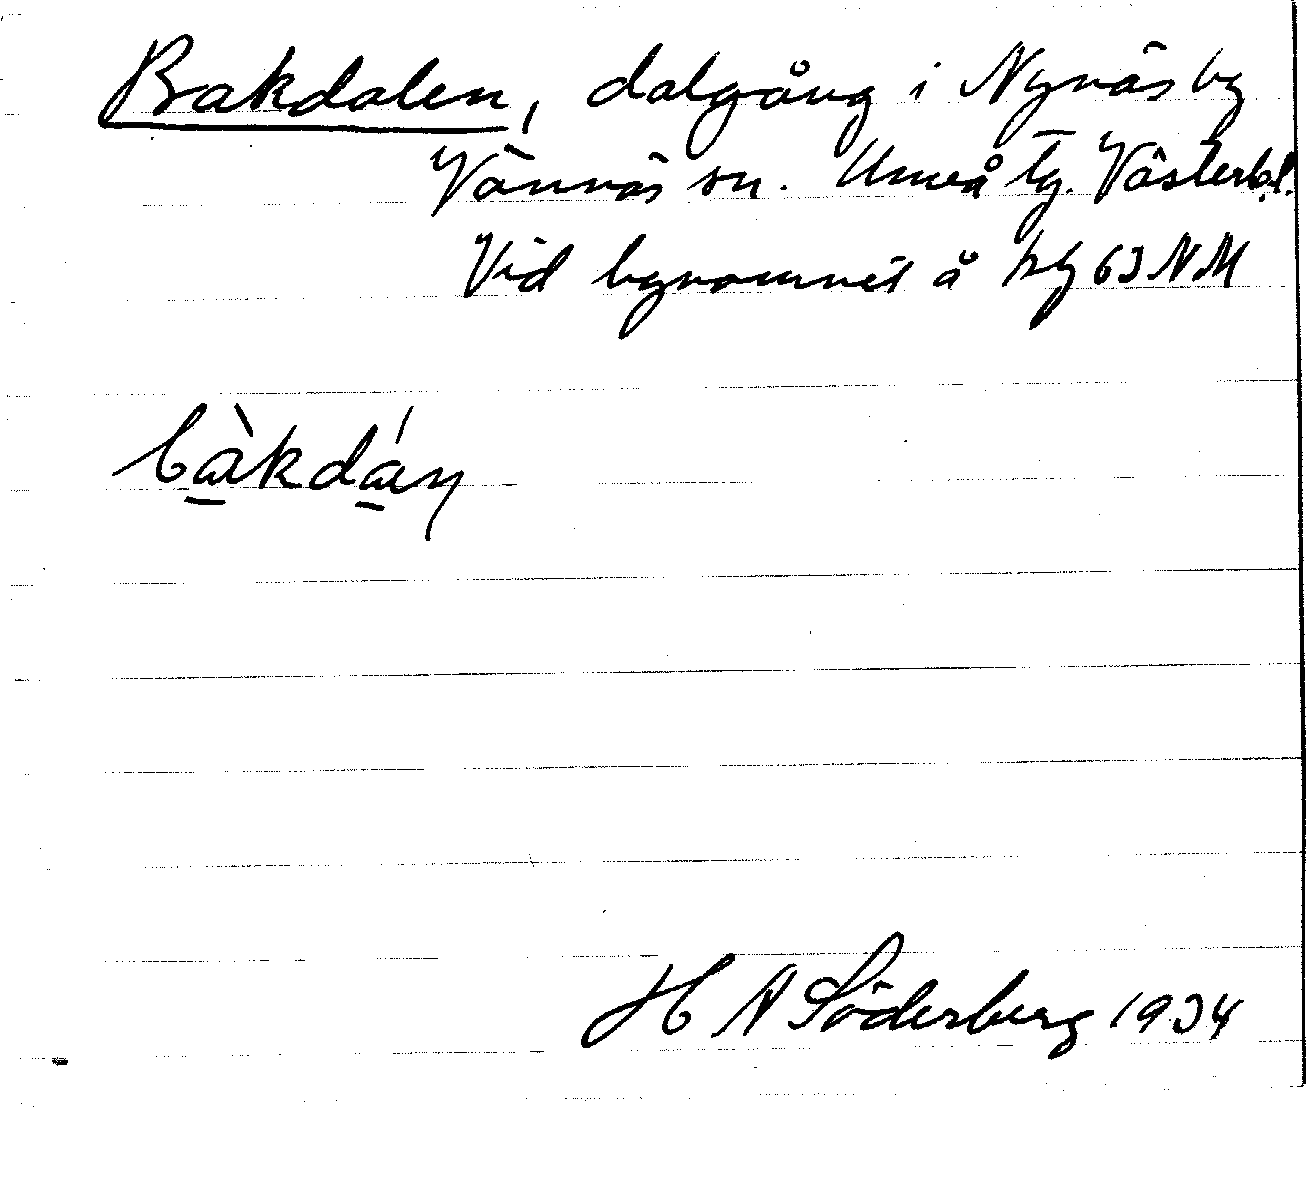 Bakdalen, dalgång i Nynäs by
Vännäs sn. Umeå tg. Västerb.l.
Vid bynamnet å blg 63 NM
bàkdán
H A Söderberg 1934